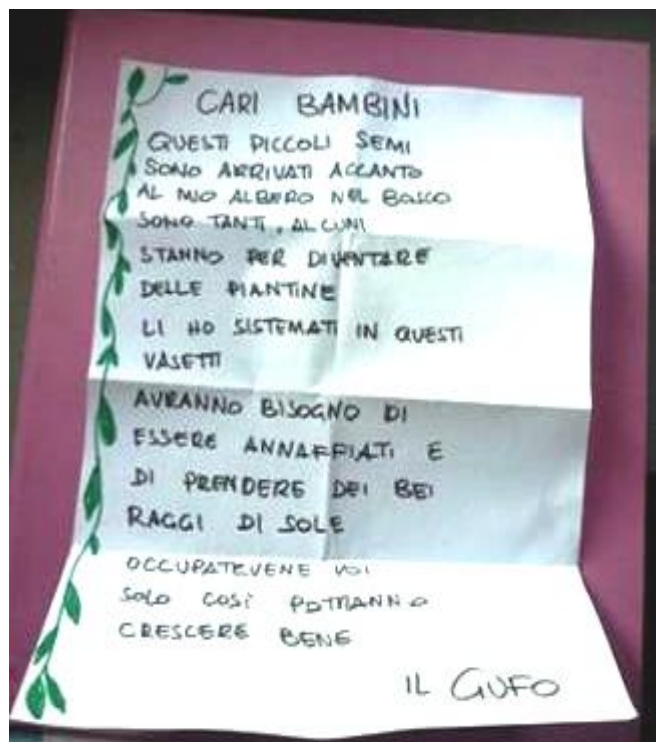 CARI BAMBINI
QUESTI PICCOLI SEMI
SONO ARRIVATI ACCANTO
AL MIO ALBERO NEL BOSCO
SONO TANTI, ALCUNI
STANNO PER DIVENTARE
DELLE PIANTINE
LI HO SISTEMATI IN QUESTI
VASETTI
AVRANNO BISOGNO DI
ESSERE ANNAFFIATI E
DI PRENDERE DEI BEI
RAGGI DI SOLE
OCCUPATEVENE VOI
SOLO COSÌ POTRANNO
CRESCERE BENE
IL GUFO